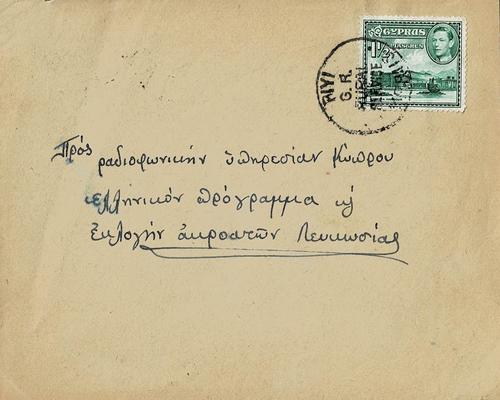 CYPRUS
1½
PIASTRES
PIYI
G.R.
RURAL
SERVICE
Πρός ραδιοφωνικήν ὑπηρεσίαν Κύπρου
ἑλληνικόν πρόγραμμα
ἐκλογήν ἀκροατῶν Λευκωσίας